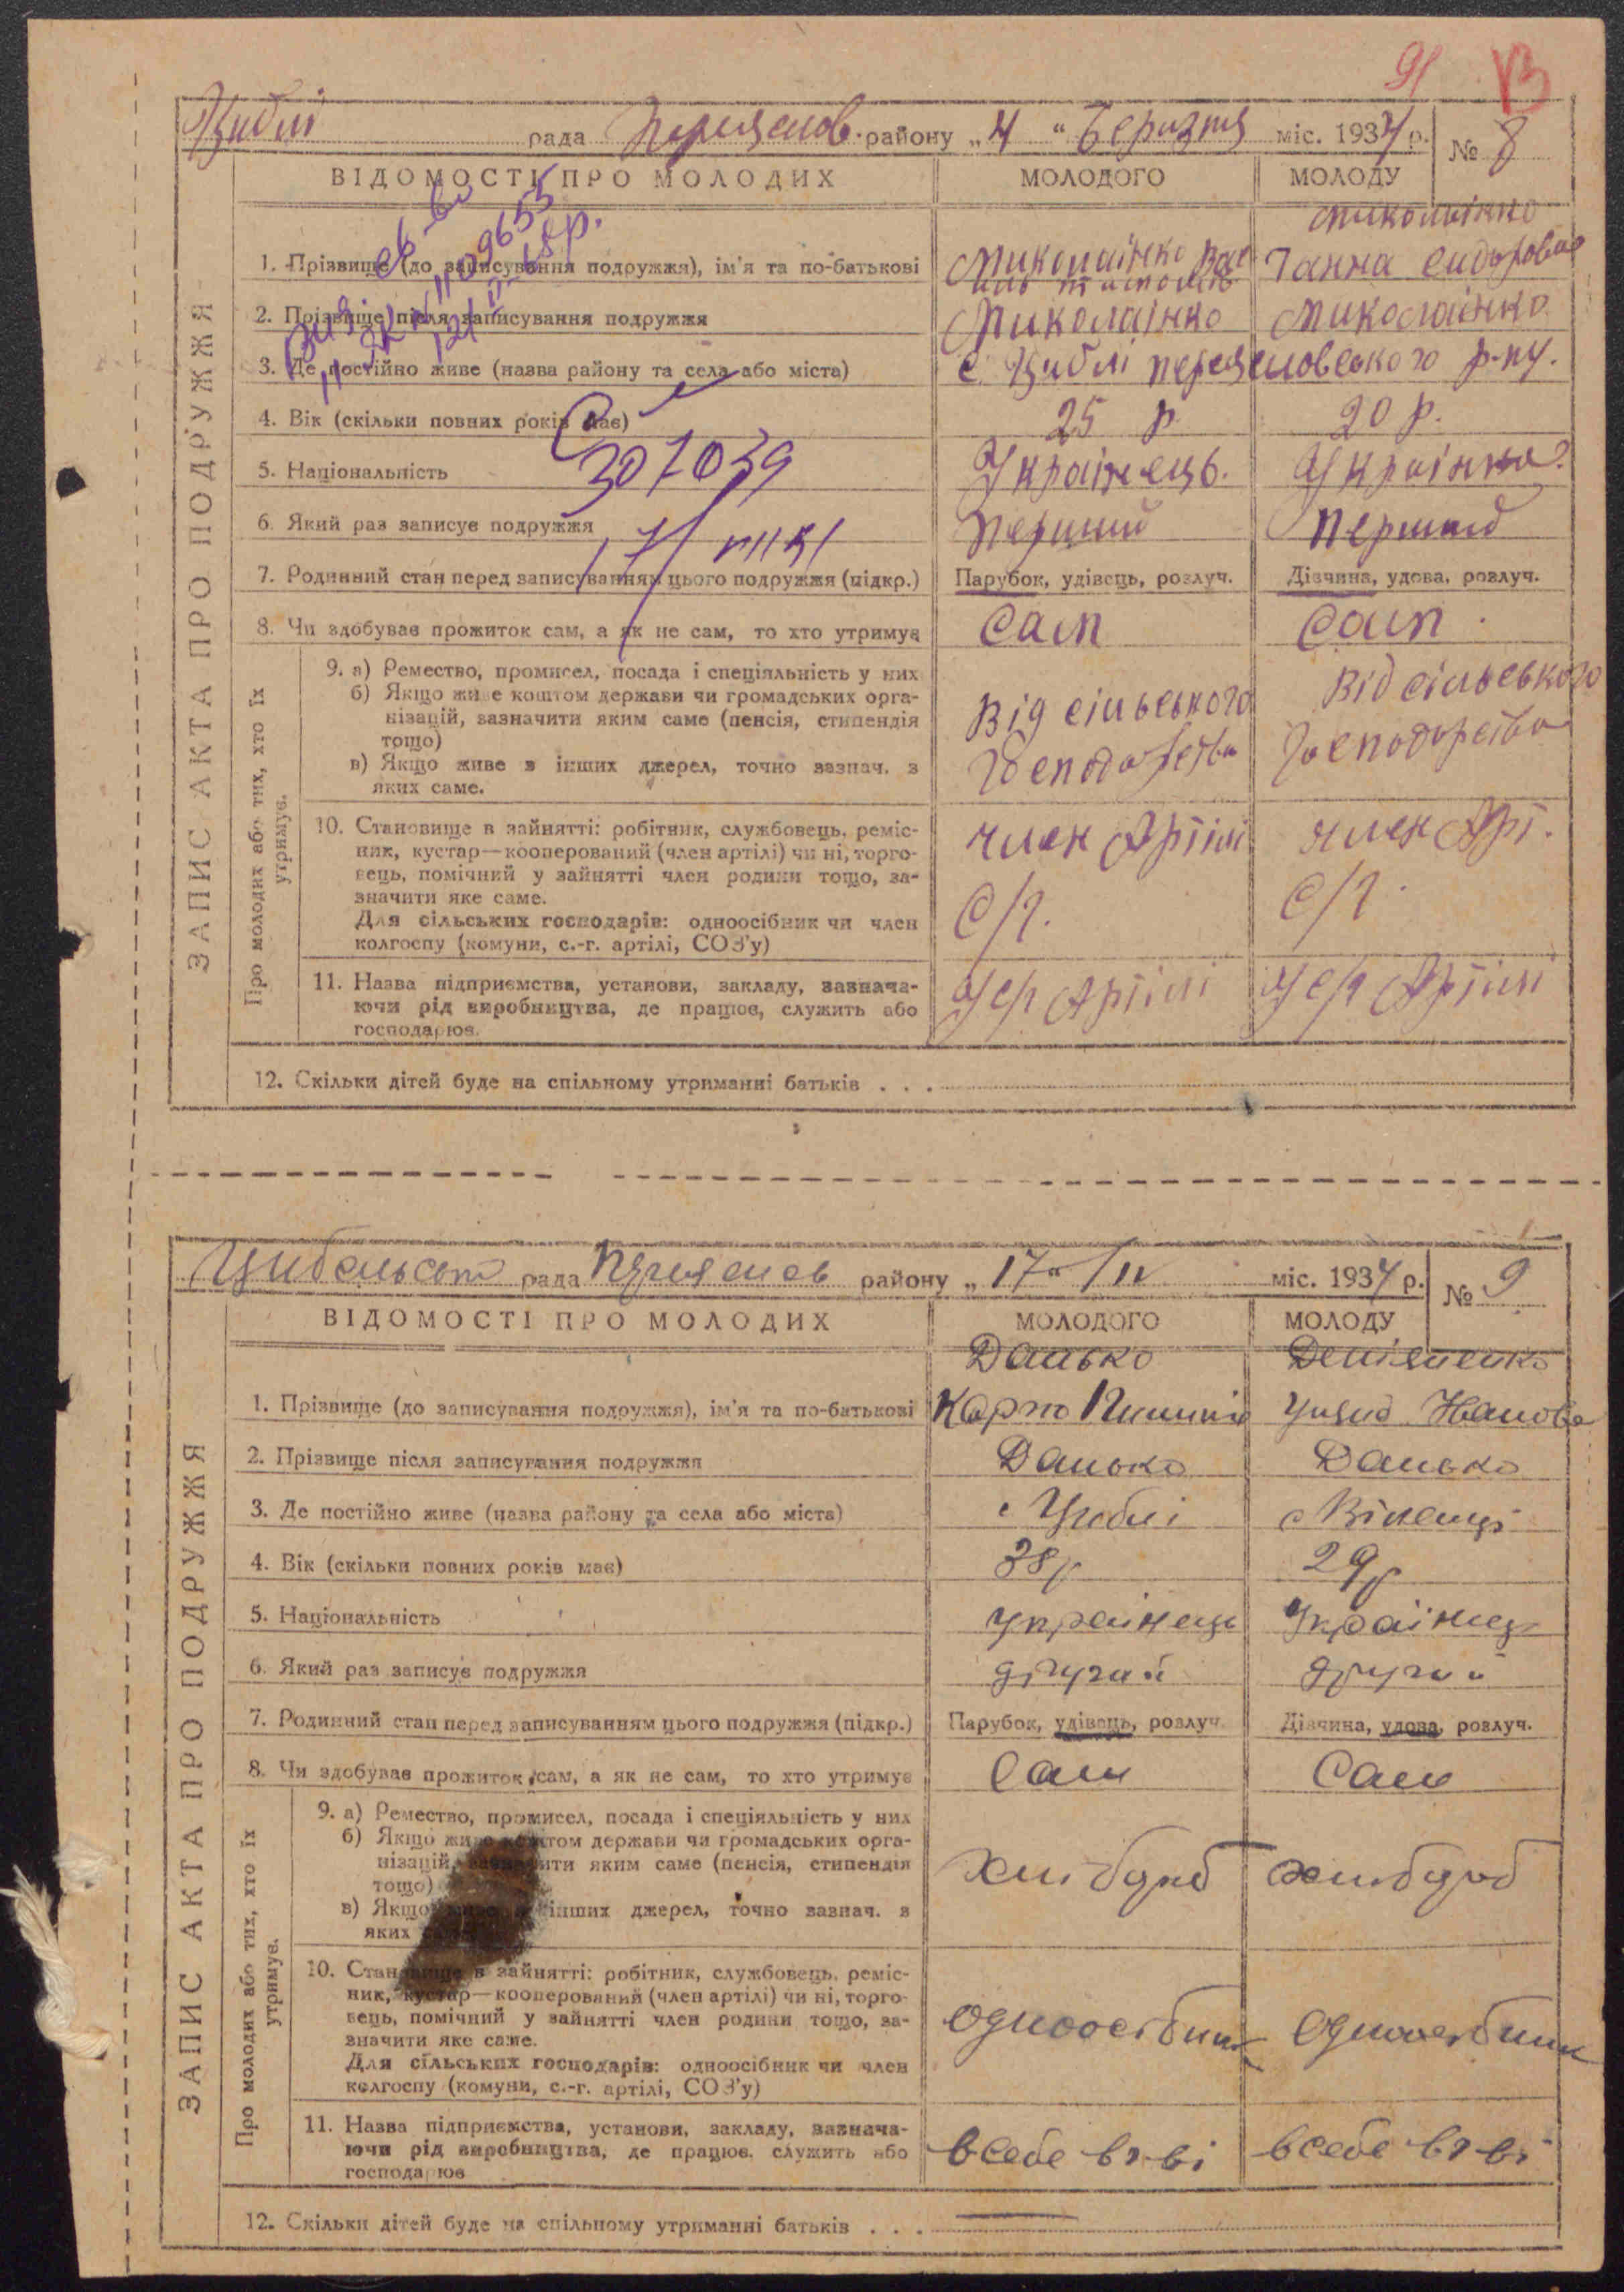 91 13
Циблі рада Переяслов. району „4“ Березня міс. 1934 р. № 8
ЗАПИС АКТА ПРО ПОДРУЖЖЯ
ВІДОМОСТІ ПРО МОЛОДИХ МОЛОДОГО МОЛОДУ
1. Прізвище (до записування подружжя), ім'я та по-батькові Миколаінко Миколаінко Ганна
2. Прізвище після записування подружжя Миколаінко Миколаінко
3. Де постійно живе (назва району та села або міста) с. Циблі переясловського р-ну.
4. Вік (скільки повних років має) 25 р 20 р.
307039
5. Національність Українець. Українка
6. Який раз записує подружжя перший перший
7. Родинний стан перед записуванням цього подружжя (підкр.) Парубок, удівець, розлуч. Дівчина, удова, розлуч.
8. Чи здобуває прожиток сам, а як не сам, то хто утримує Сам Сам
Про молодих або тих, хто їх утримує.
9. а) Ремество, промисел, посада і спеціяльність у них
б) Якщо живе коштом держави чи громадських орга-
нізацій, зазначити яким саме (пенсія, стипендія
тощо)
в) Якщо живе з інших джерел, точно зазнач. з
яких саме.
Від сільського Від сільського
господарства господарства
10. Становище в зайнятті: робітник, службовець, реміс-
ник, кустар—кооперований (член артілі) чи ні, торго-
вець, помічний у зайнятті член родини тощо, за-
значити яке саме.
Для сільських господарів: одноосібник чи член
колгоспу (комуни, с.-г. артілі, СОЗ'у)
член Артілі член Арт.
С/г. С/г.
11. Назва підприємства, установи, закладу, зазнача-
ючи рід виробництва, де працює, служить або
господарює.
У с/г Артілі У с/г Артілі
12. Скільки дітей буде на спільному утриманні батьків . . .
рада Переяслов району „17“ IV міс. 1934 р. № 9
ЗАПИС АКТА ПРО ПОДРУЖЖЯ
ВІДОМОСТІ ПРО МОЛОДИХ МОЛОДОГО МОЛОДУ
Данько Дем'яненко
1. Прізвище (до записування подружжя), ім'я та по-батькові Карпо
2. Прізвище після записування подружжя Данько Данько
3. Де постійно живе (назва району та села або міста) с Циблі с Віненці
4. Вік (скільки повних років має) 38р 29р
5. Національність українець Українец
6. Який раз записує подружжя другий другий
7. Родинний стан перед записуванням цього подружжя (підкр.) Парубок, удівець, розлуч. Дівчина, удова, розлуч.
8. Чи здобуває прожиток сам, а як не сам, то хто утримує Сам Сам
Про молодих або тих, хто їх утримує.
9. а) Ремество, промисел, посада і спеціяльність у них
б) Якщо живе коштом держави чи громадських орга-
нізацій, зазначити яким саме (пенсія, стипендія
тощо)
в) Якщо інших джерел, точно зазнач. з
яких
хлібороб хлібороб
10. Становище в зайнятті: робітник, службовець, реміс-
ник, кустар—кооперований (член артілі) чи ні, торго-
вець, помічний у зайнятті член родини тощо, за-
значити яке саме.
Для сільських господарів: одноосібник чи член
колгоспу (комуни, с.-г. артілі, СОЗ'у)
одноосібник одноосібник
11. Назва підприємства, установи, закладу, зазнача-
ючи рід виробництва, де працює, служить або
господарює
в себе в г-ві в себе в г-ві
12. Скільки дітей буде на спільному утриманні батьків . . .